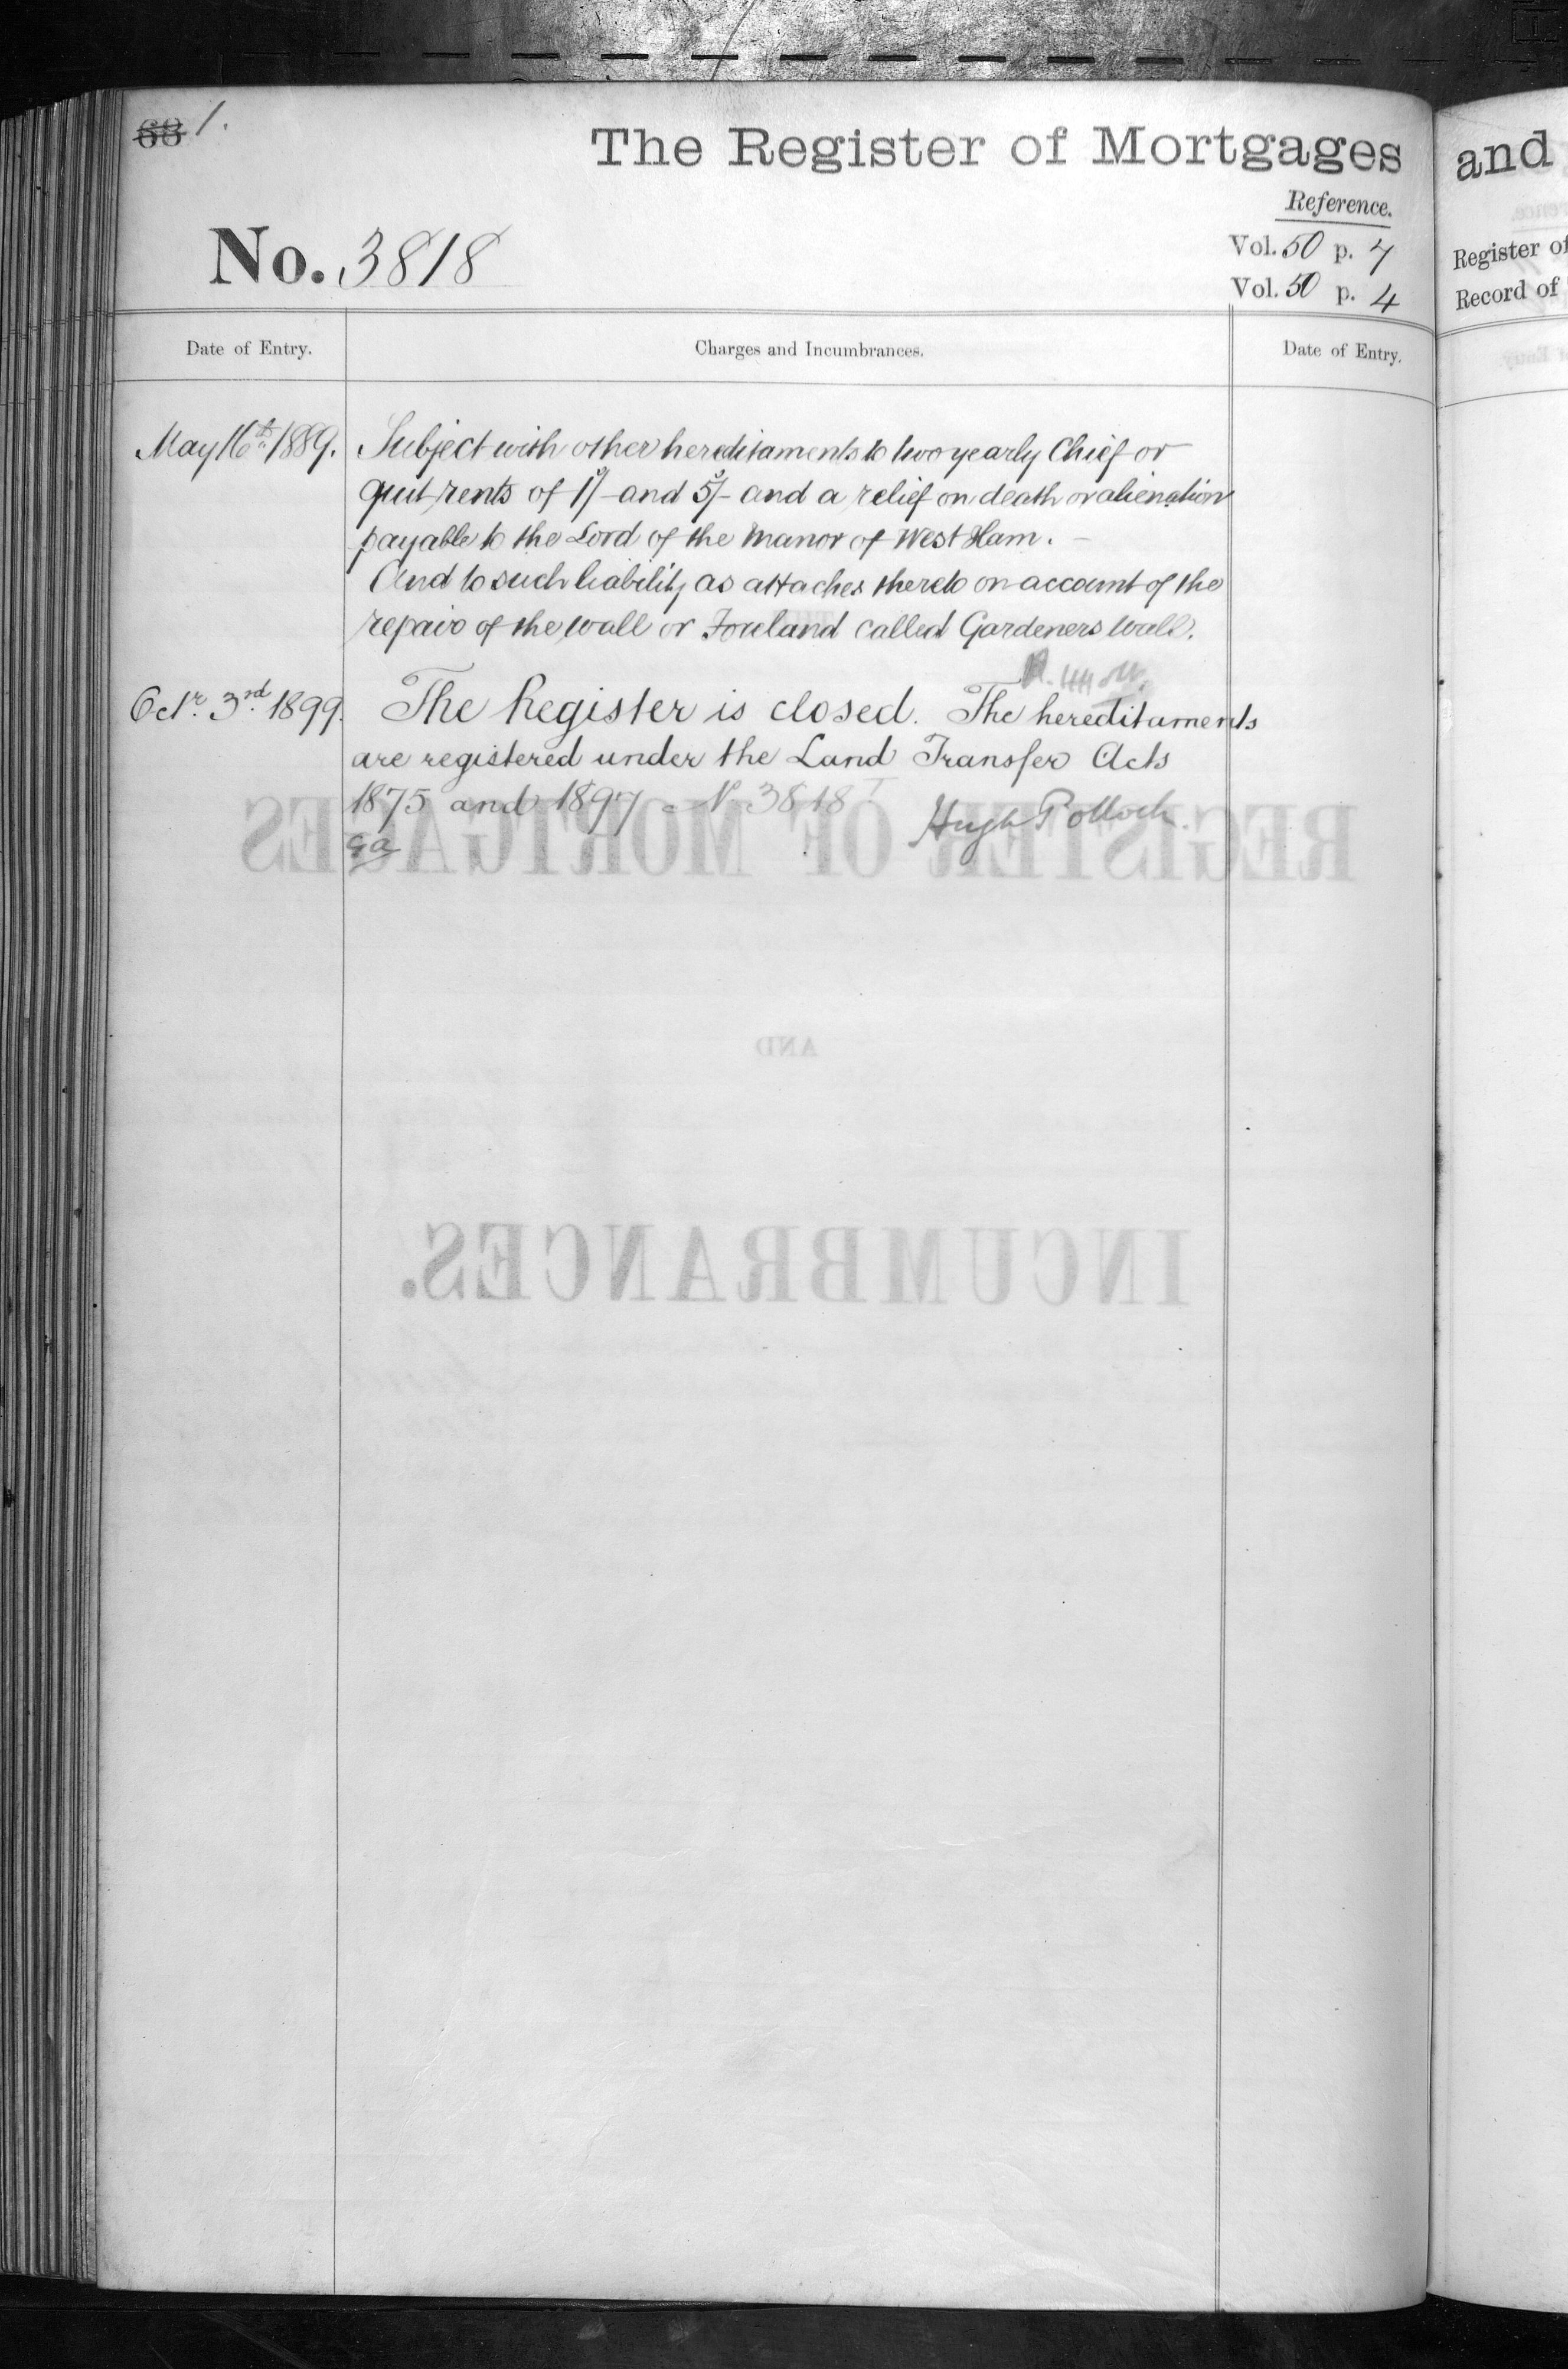 68 1.
The Register of Mortgages
and
Reference.
No. 3818
Vol. 50 p. 7
Vol. 50 p. 4
Register of
Record of
Date of Entry.
Charges and Incumbrances.
Date of Entry.
May 16th 1889.
Subject with other hereditaments to two yearly Chief or
quit rents of 1s/- and 5s/- and a relief on death or alienation
payable to the Lord of the Manor of West Ham. -
And to such liability as attaches thereto on account of the
repair of the wall or Foreland called Gardeners Wall.
Octr. 3rd 1899.
The Register is closed. The hereditaments
are registered under the Land Transfer Acts
1875 and 1897 - No 3818
Hugh Pollock
REGISTER OF MORTGAGES
AND
INCUMBRANCES.